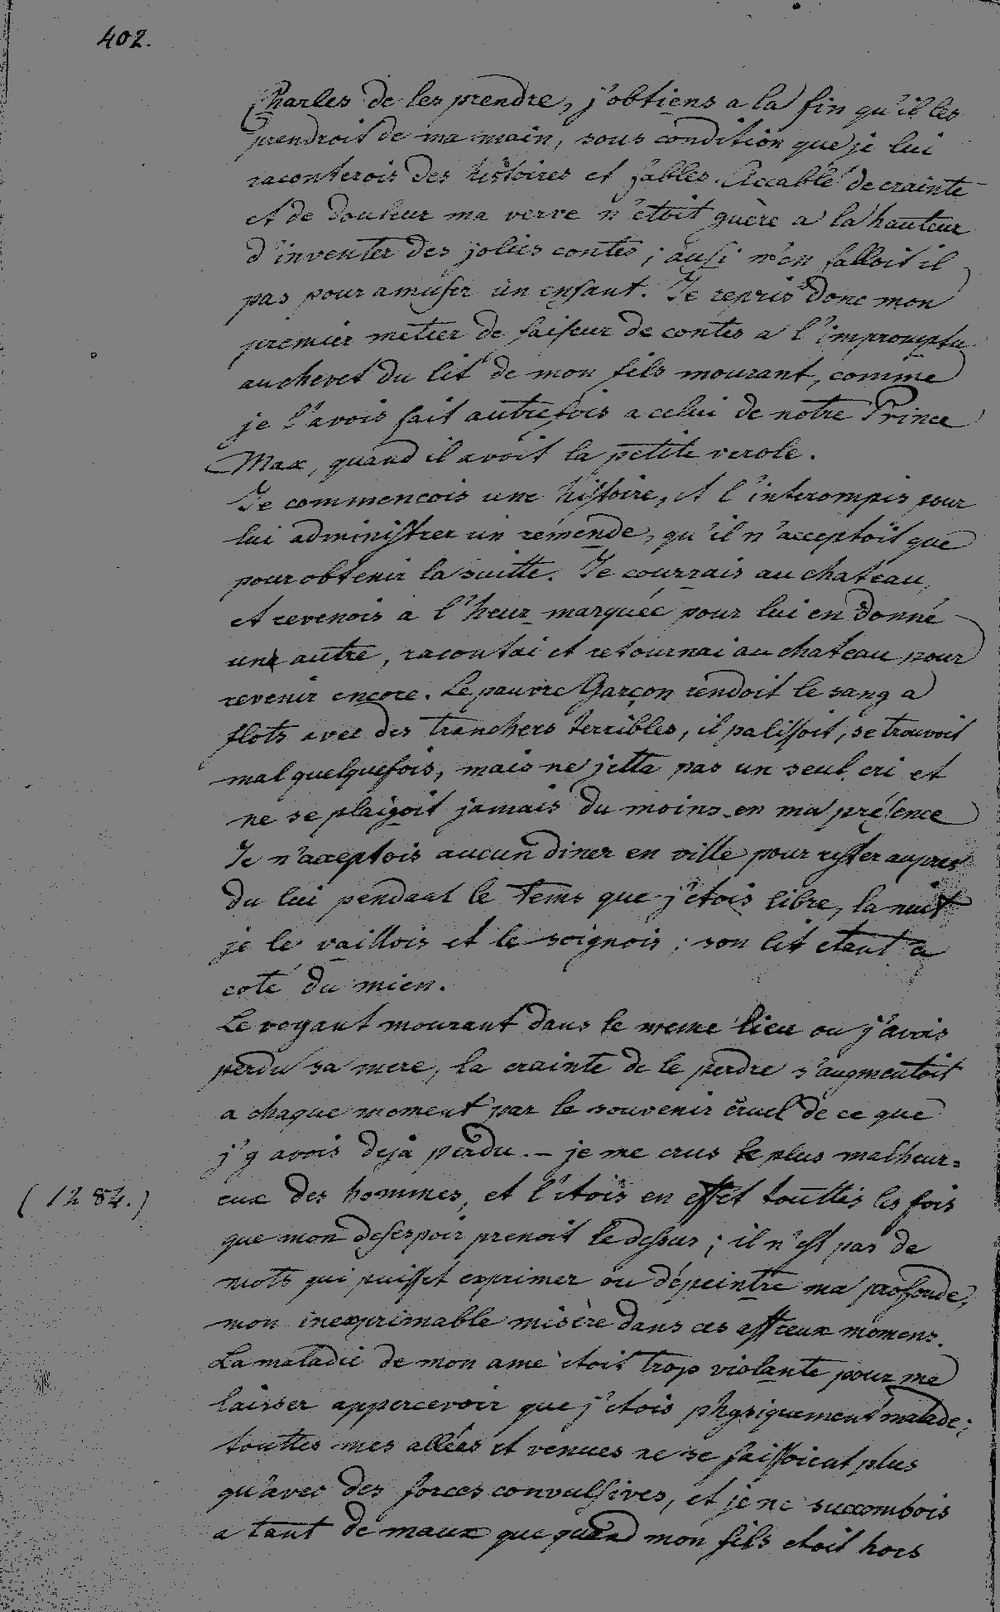 402.
Charles de les prendre, j'obtiens a la fin qu'il les
prendroit de ma main, sous condition que je lui
raconterois des histoires et fables. Accablé de crainte
et de douleur ma verve n'étoit guère a la hauteur
d'inventer des jolies contes; ausi n'en falloit il
pas pour amuser un enfant. Je repris donc mon
premier métier de faiseur de contes a l'impromptu
au chevet du lit de mon fils mourant, comme
je l'avois fait autrefois a celui de notre Prince
Max, quand il avoit la petite verole.
Je commencois une histoire, et l'interompis pour
lui administrer un remende, qu'il n'acceptoit que
pour obtenir la suitte. Je courrais au chateau,
et revenois a l'heur marquée pour lui en donné
une autre, racontai et retournai au chateau pour
revenir encore. Le pauvre Garçon rendoit le sang a
flots avec des tranchers terribles, il palissoit, se trouvoit
mal quelquefois, mais ne jetta pas un seul cri et
ne se plaigoit jamais du moins en ma présence
Je n'acceptois aucun diner en ville pour rester aupres
du lui pendant le tems que j'étois libre, la nuit
je le vaillois et le soignois; son lit etant a
coté du mien.
Le voyant mourant dans le meme lieu ou j'avois
perdu sa mere, la crainte de le perdre s'augmentoit
a chaque moment par le souvenir cruel de ce que
j'y avois dejà perdu. – je me crus le plus malheur=
eux des hommes, et l'étois en effet touttes les fois
que mon desespoir prenoit le dessus; il n'est pas de
mots qui puisset exprimer ou dépeintre ma profonde,
mon inexprimable misère dans ces affreux momens.
(1284.)
La maladie de mon ame étoit trop violante pour me
laisser appercevoir que j'etois physiquement malade;
touttes mes allées et venues ne se faissoient plus
qu'avec des forces convulsives, et je ne succombois
a tant de maux que quand mon fils etoit hors